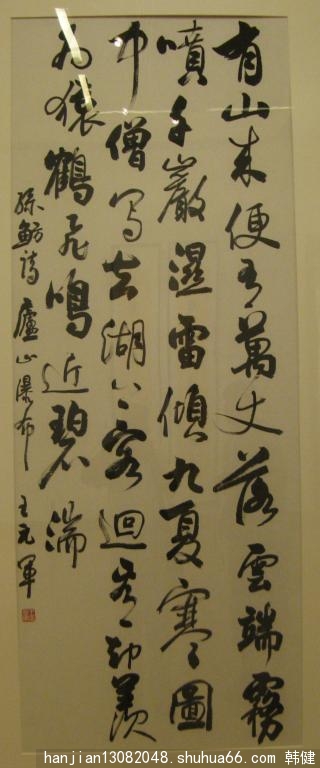 有山来便有萬丈落雲端霧
噴千巖濕雷傾九夏寒圖
中僧写去湖上客迴看却羡
为猿鶴飛鳴近碧湍
孫魴詩廬山瀑布 王元軍
hanjian13082048.shuhua66.com 韩健